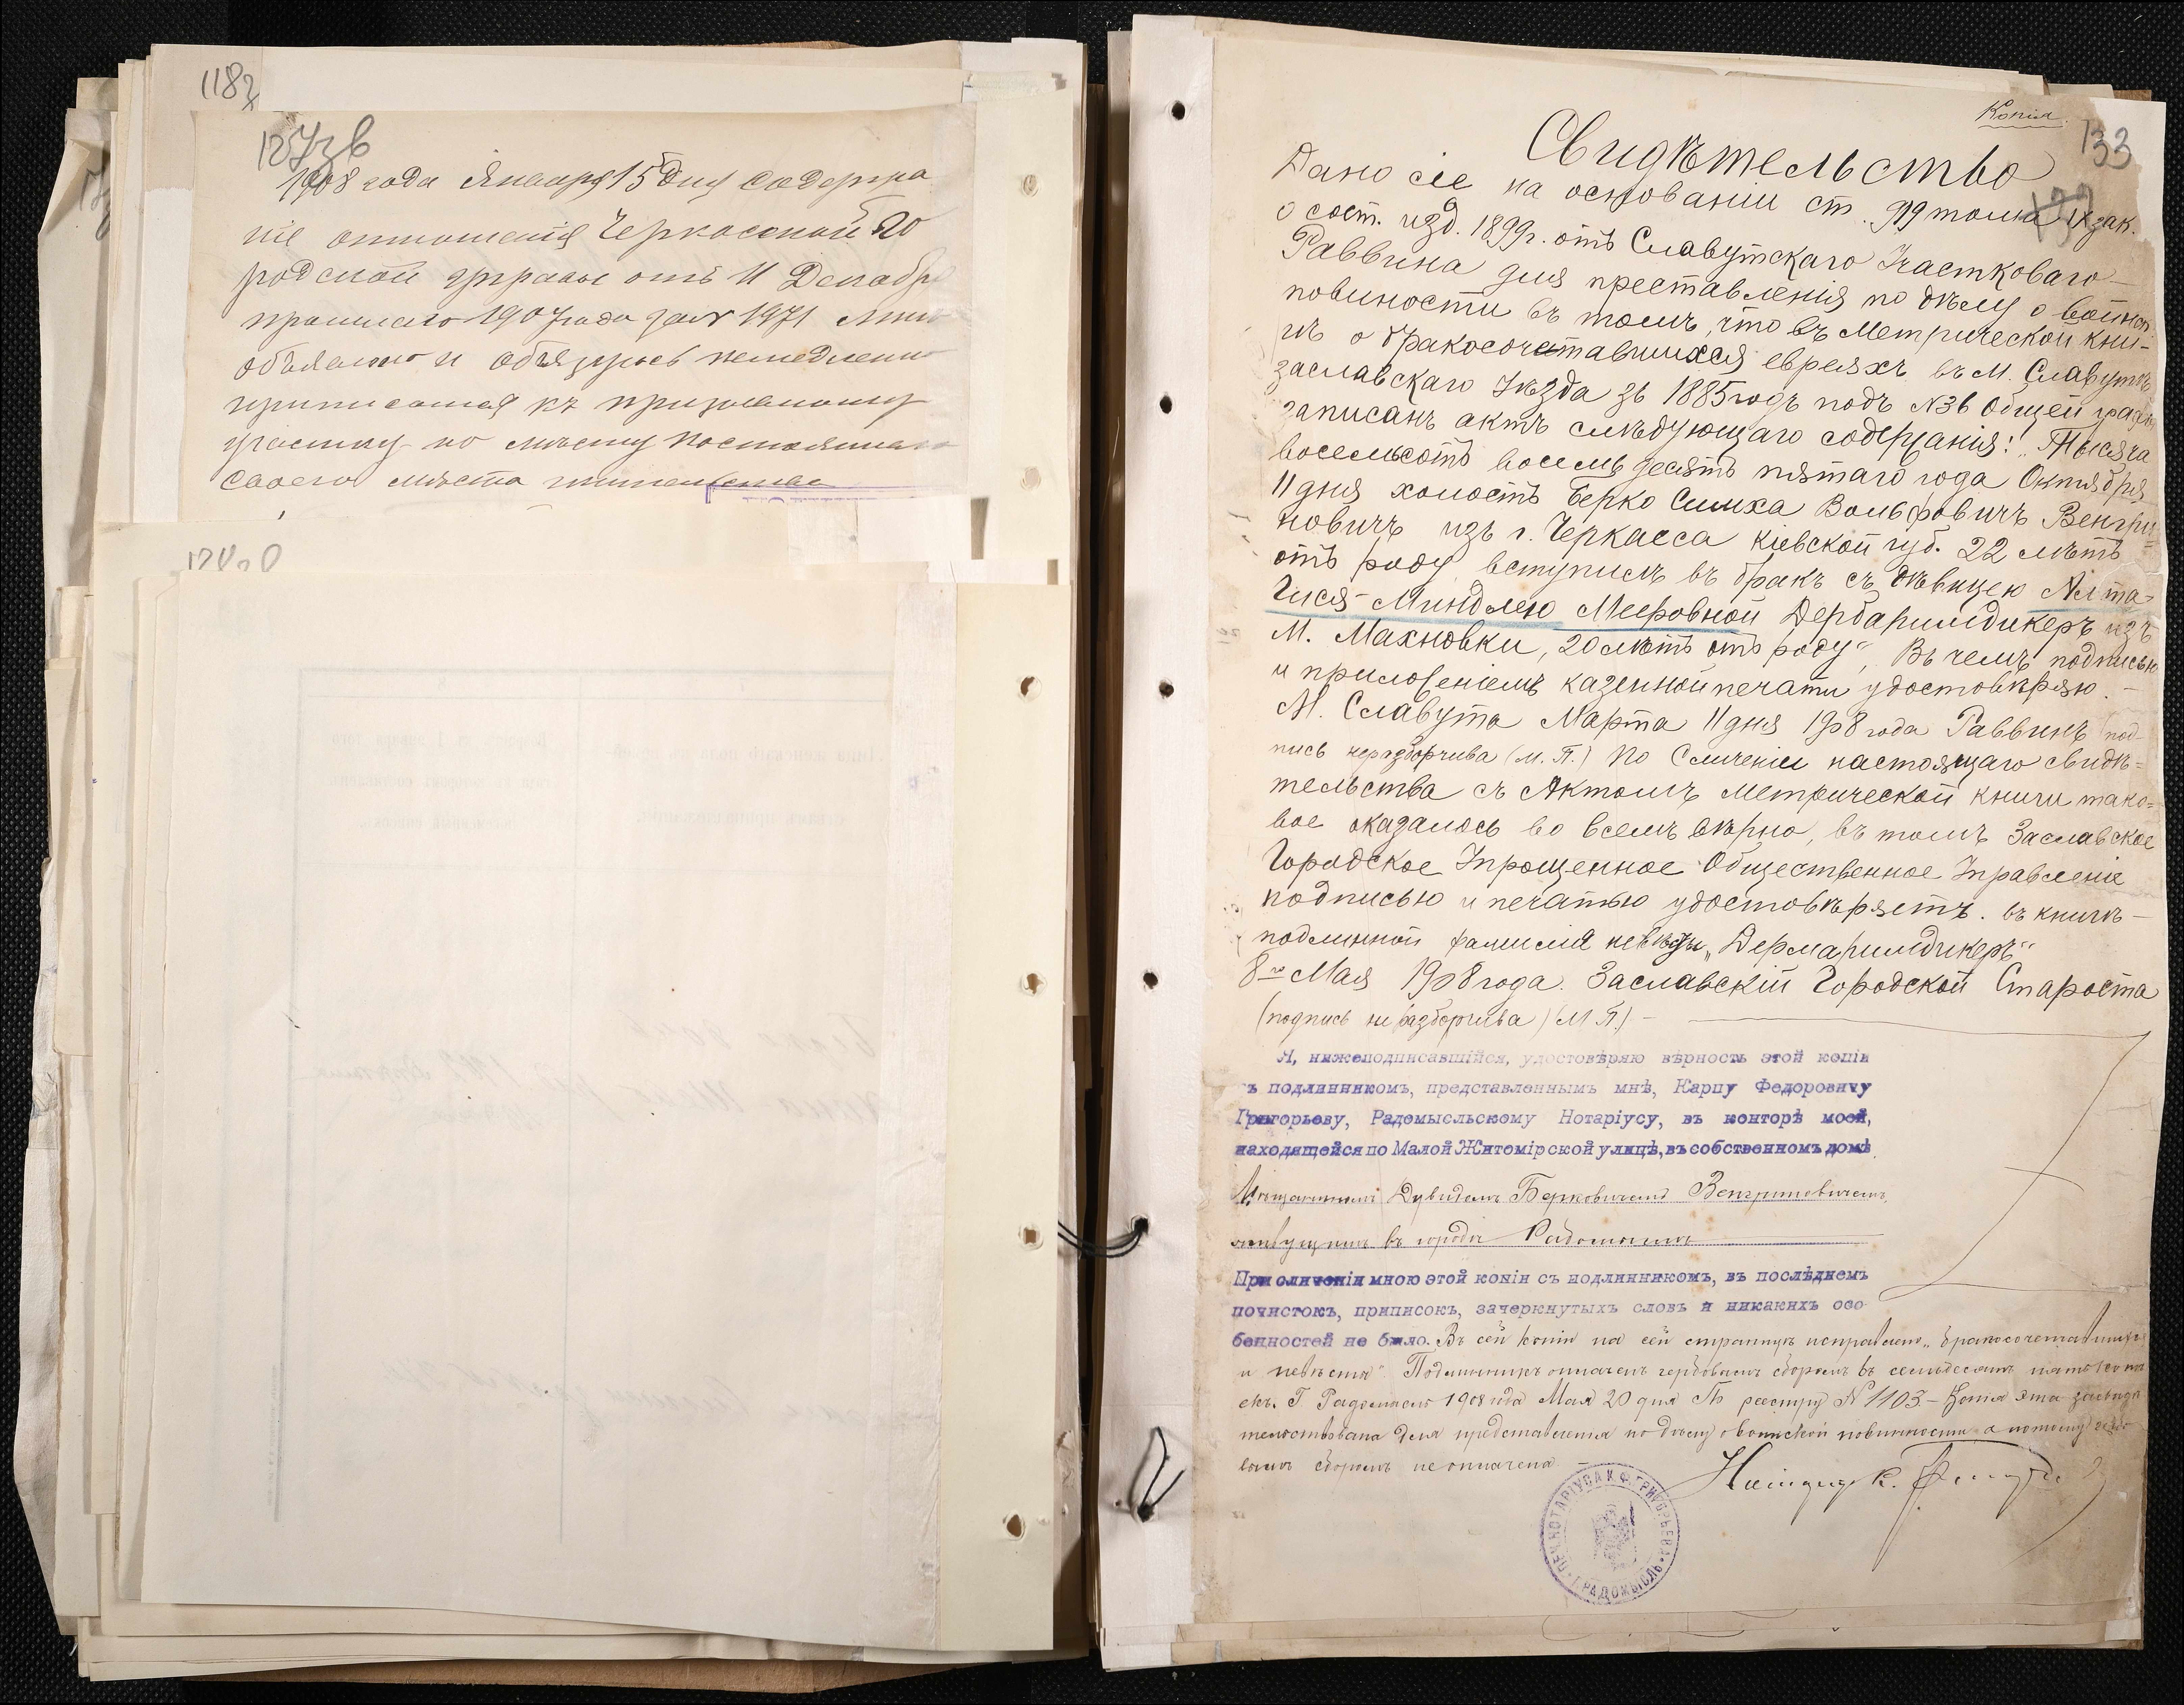 118
1908 года Января 15 дня содержа
ніе отношенія Черкасской Го
родской управы отъ 11 Декабря
прошлаго 1907 года за № 1971 мнѣ
объявлено и обязуюсь немедленно
приписаться къ призывному
участку по мѣсту постояннаго
своего мѣста жительства
Копія
133
Свидѣтельство
Дано сіе на основаніи ст. 919 тома IX зак.
о сост. изд. 1899 г. отъ Славутскаго Участковаго
Раввина для преставленія по дѣлу о воинск.
повиности въ томъ, что въ Метрической кни-
гѣ о бракосочетавшихся евреяхъ въ М. Славутѣ
Заславскаго Уѣзда за 1885 годъ подъ № 36 общей графы
записанъ актъ слѣдующаго содержанія: „Тысяча
восемьсотъ восемьдесятъ пятаго года Октября
11 дня холостъ Берко Симха Вольфовичъ Венгри-
новичъ изъ г. Черкасса Кіевской губ. 22 лѣтъ
отъ роду вступилъ въ бракъ съ дѣвицею Алта-
Гися-Миндлею Мееровной Дербаримдикеръ изъ
М. Махновки, 20 лѣтъ отъ роду", Въ чемъ подписью
и приложеніемъ казенной печати удостовѣряю. –
М. Славута Марта 11 дня 1908 года Раввинъ (под-
пись неразборчива (М. П.) По Сличеніи настоящаго свидѣ=
тельства съ Актомъ Метрической книги тако=
вое оказалось во всемъ вѣрно, въ томъ Заславское
Городское Упрощенное Общественное Управленіе
подписью и печатью удостовѣряетъ. въ книгѣ –
подлинной фамилія невѣсты „Дермаримдикеръ"
8го Мая 1908 года. Заславскій Городской Староста
(подпись неразборчива) (М. П.) –
Я, нижеподписавшійся, удостовѣряю вѣрность этой копіи
съ подлинникомъ, представленнымъ мнѣ, Карпу Федоровичу
Григорьеву, Радомысльскому Нотаріусу, въ конторѣ моей,
находящейся по Малой Житомірской улицѣ, въ собственномъ домѣ
Мѣщаниномъ Дувидомъ Берковичемъ Венгриновичемъ,
живущимъ въ городѣ Радомыслѣ
При сличеніи мною этой копіи съ подлинникомъ, въ послѣднемъ
почистокъ, приписокъ, зачеркнутыхъ словъ и никакихъ осо-
бенностей не было. Въ сей копіи на сей страницѣ исправлено „бракосочетавшихся
и невѣсты". Подлинникъ оплаченъ гербовымъ сборомъ въ семьдесятъ пять копѣ
екъ. Г. Радомысль 1908 года Мая 20 дня По реестру № 1103. – Копія эта засвидѣ
тельствована для представленія по дѣлу о воинской повинности а потому гербо
вымъ сборомъ не оплачена –
Нотаріусъ К. Григорьевъ
ПЕЧ. НОТАРІУСА К. Ф. ГРИГОРЬЕВА * Г. РАДОМЫСЛЬ *